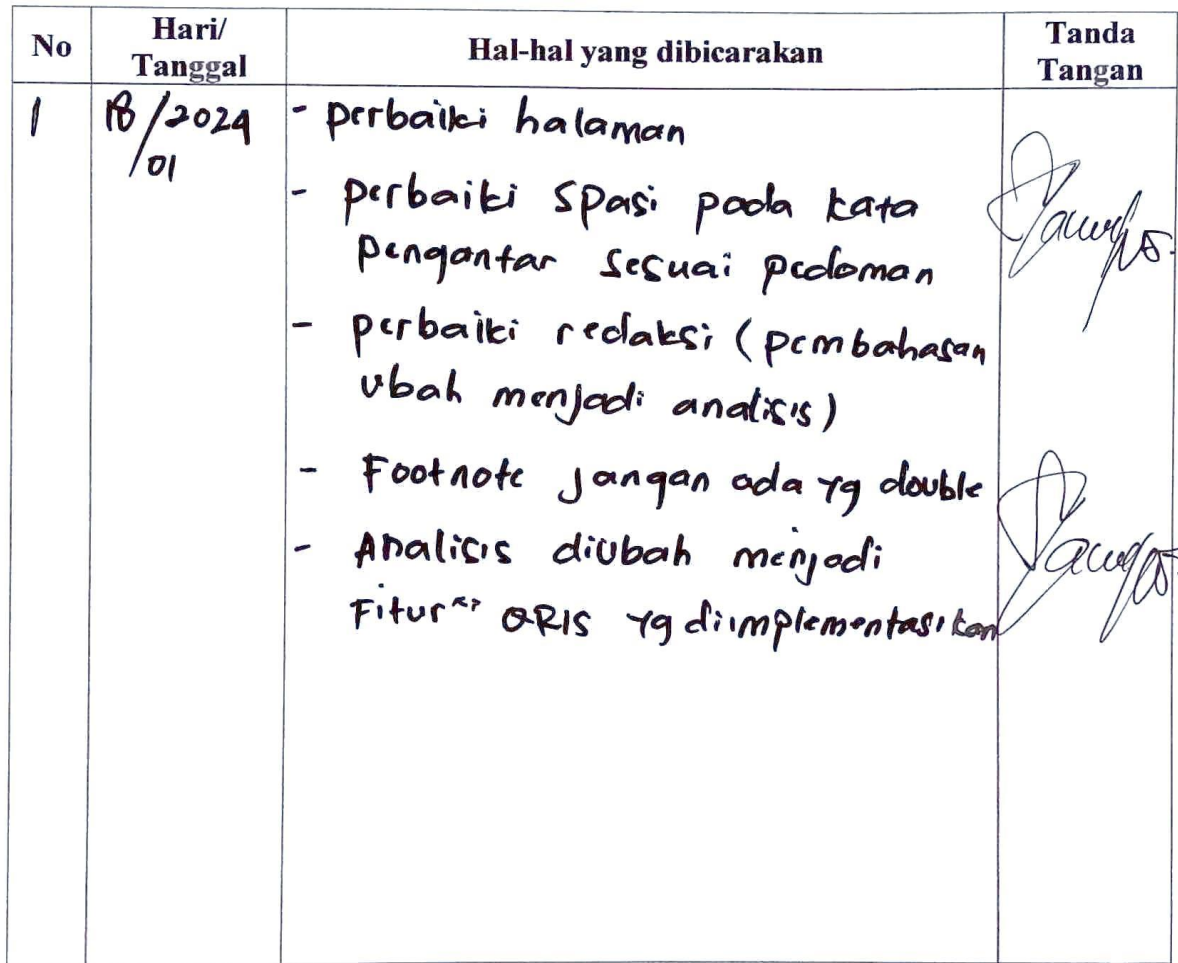 No
Hari/
Tanggal
Hal-hal yang dibicarakan
Tanda
Tangan
1
18/2024
/01
- perbaiki halaman
- perbaiki spasi pada kata
pengantar sesuai pedoman
- perbaiki redaksi (pembahasan
ubah menjadi analisis)
- Footnote jangan ada yg double
- Analisis diubah menjadi
Fitur QRIS yg diimplementasikan